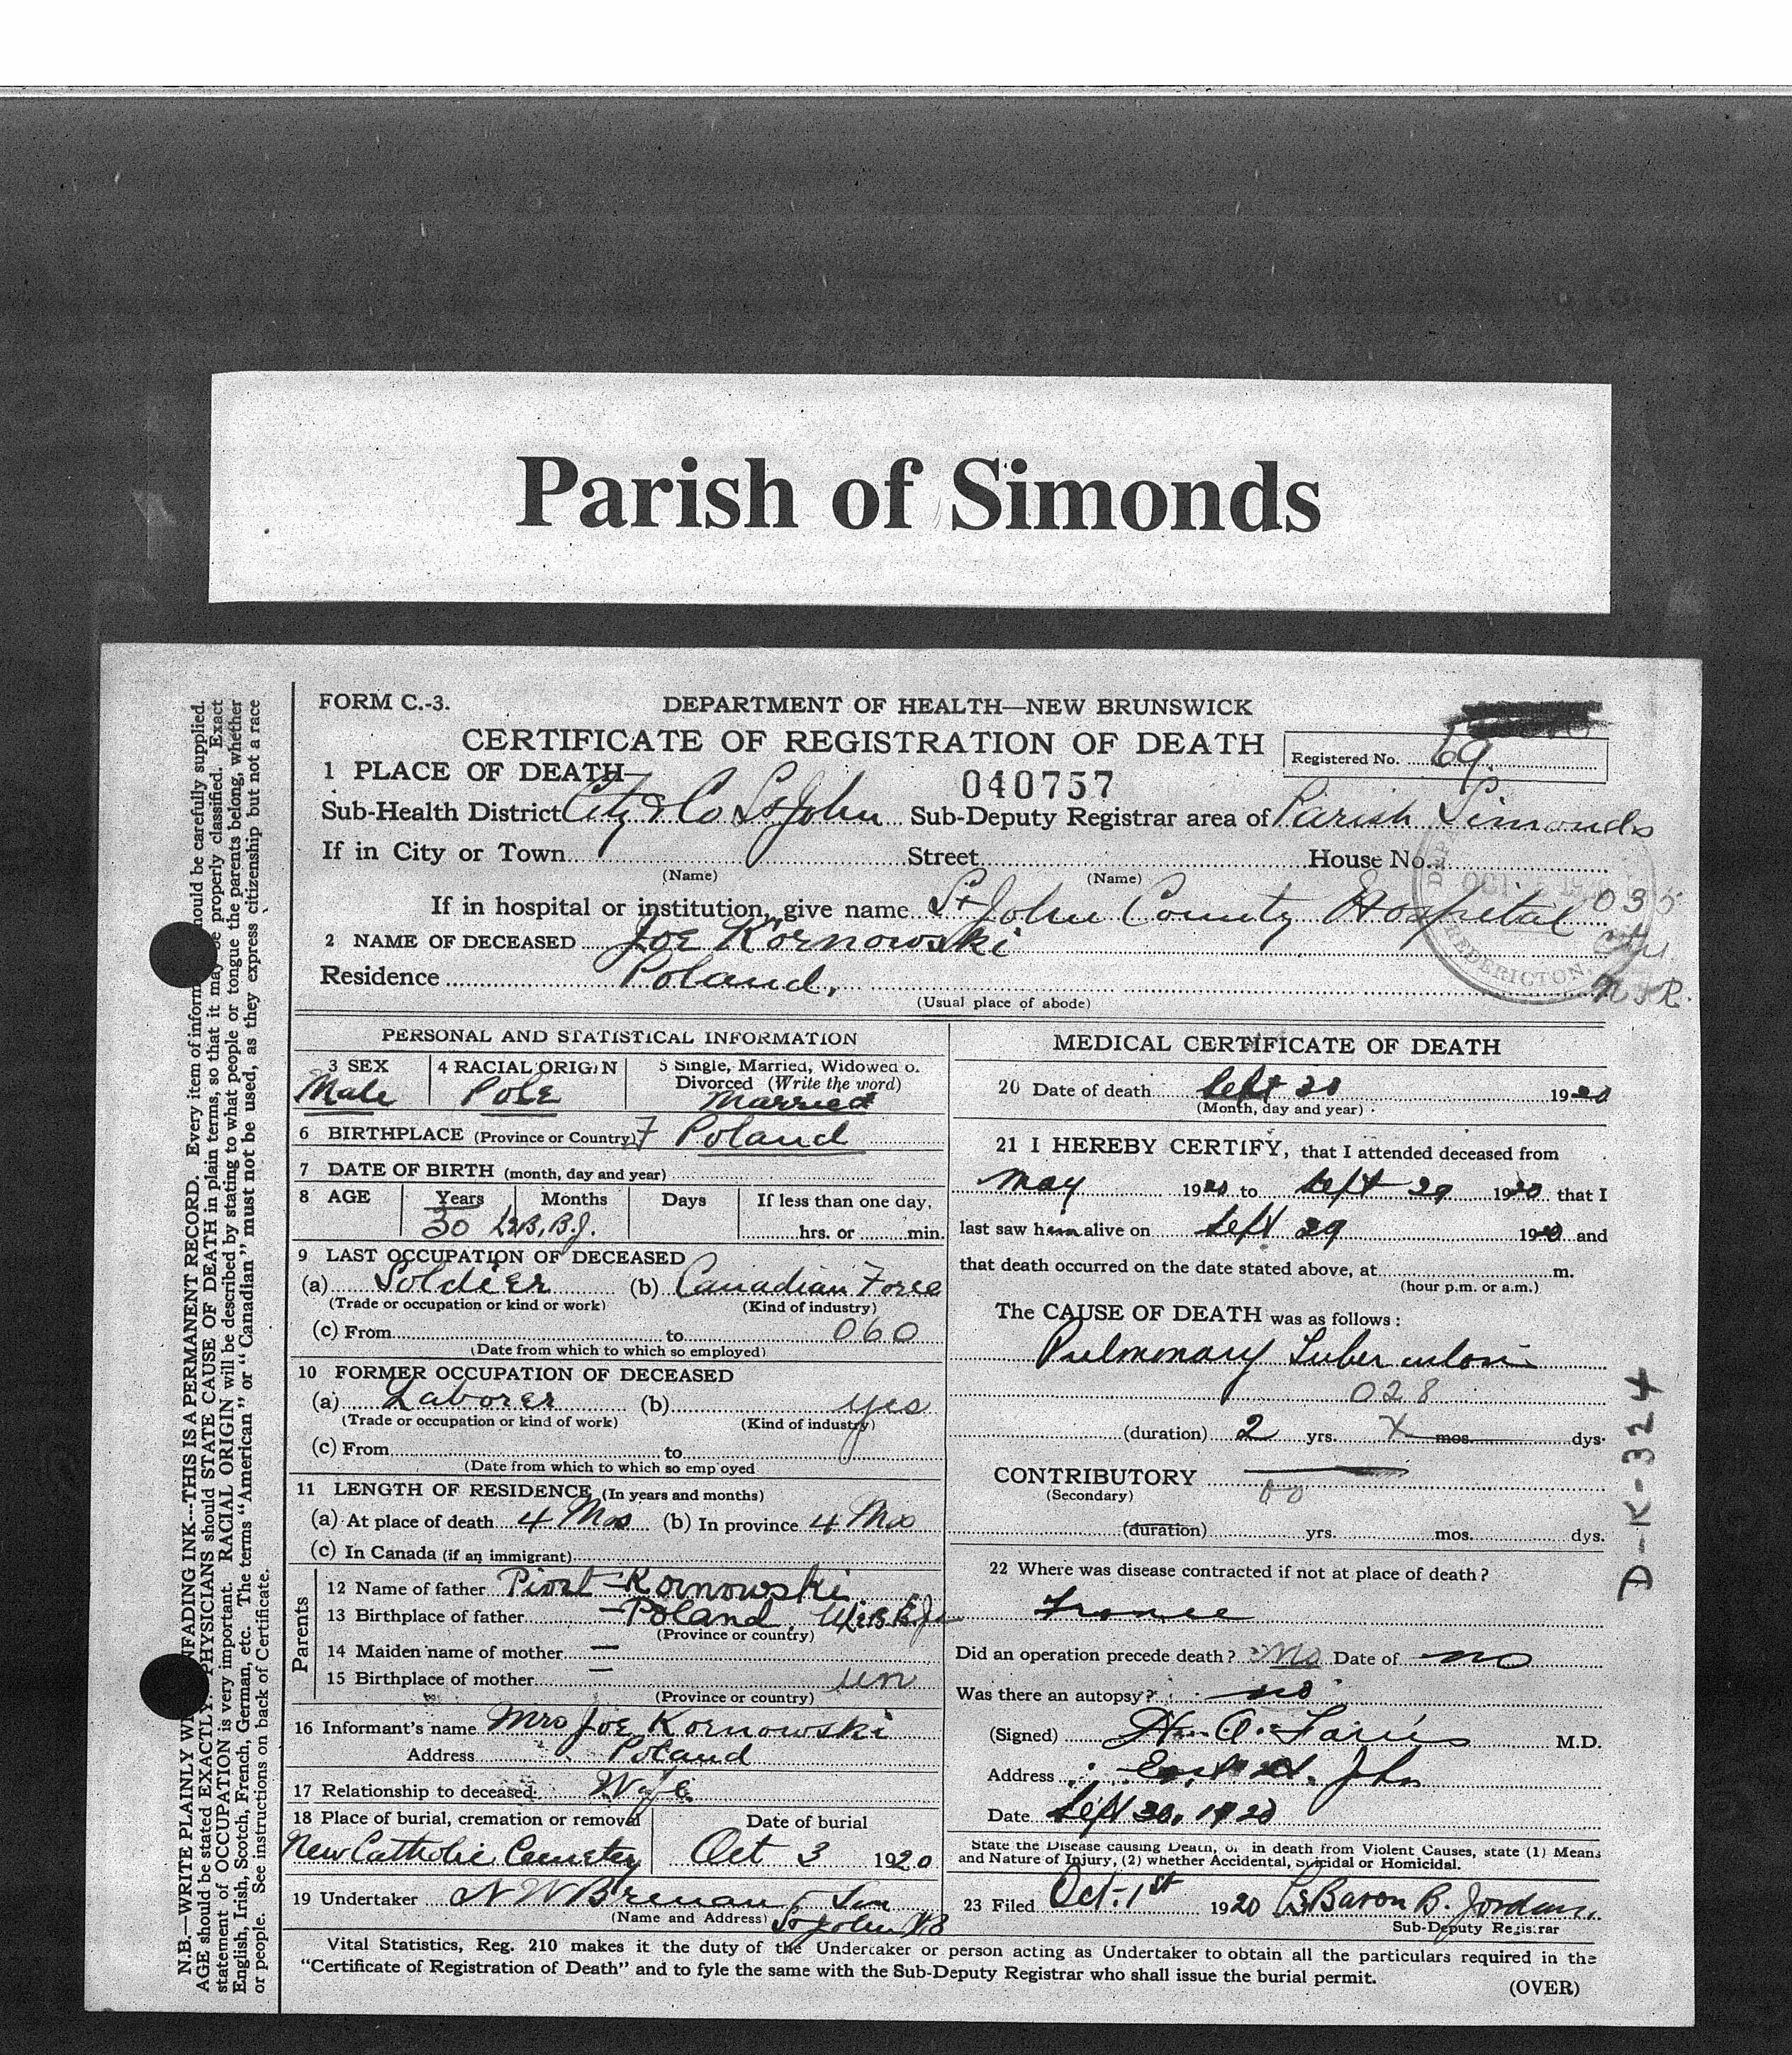 Parish of Simonds
FORM C.-3. DEPARTMENT OF HEALTH—NEW BRUNSWICK
CERTIFICATE OF REGISTRATION OF DEATH
Registered No. 69.
1 PLACE OF DEATH— 040757
Sub-Health District City & Co St John Sub-Deputy Registrar area of Parish Simonds
If in City or Town Street House No.
(Name) (Name)
If in hospital or institution, give name St John County Hospital 035
2 NAME OF DECEASED Joe Kornowski
Residence Poland,
(Usual place of abode)
FREDERICTON,
PERSONAL AND STATISTICAL INFORMATION
3 SEX 4 RACIAL ORIGIN 5 Single, Married, Widowed o.
Divorced (Write the word)
Male Pole Married
6 BIRTHPLACE (Province or Country) 7 Poland
7 DATE OF BIRTH (month, day and year)
8 AGE Years Months Days If less than one day,
30 LeB.B.J. hrs. or min.
9 LAST OCCUPATION OF DECEASED
(a) Soldier (b) Canadian Force
(Trade or occupation or kind or work) (Kind of industry)
(c) From to 060
(Date from which to which so employed)
10 FORMER OCCUPATION OF DECEASED
(a) Laborer (b) yes
(Trade or occupation or kind of work) (Kind of industry)
(c) From to
(Date from which to which so emp oyed
11 LENGTH OF RESIDENCE (In years and months)
(a) At place of death 4 Mos (b) In province 4 Mos
(c) In Canada (if an immigrant)
Parents
12 Name of father Piort Kornowski
13 Birthplace of father —Poland,
(Province or country)
14 Maiden name of mother —
15 Birthplace of mother — un
(Province or country)
16 Informant's name Mrs Joe Kornowski
Address Poland
17 Relationship to deceased Wife
18 Place of burial, cremation or removal Date of burial
New Catholic Cemetery Oct 3 1920
19 Undertaker N W Brenan & Son
(Name and Address) St John NB
MEDICAL CERTIFICATE OF DEATH
20 Date of death Sept 30 1920
(Month, day and year)
21 I HEREBY CERTIFY, that I attended deceased from
May 1920 to Sept 29 1920 that I
last saw him alive on Sept 29 1920 and
that death occurred on the date stated above, at m.
(hour p.m. or a.m.)
The CAUSE OF DEATH was as follows:
Pulmonary Tuberculosis
028
(duration) 2 yrs. X mos. dys.
CONTRIBUTORY
(Secondary)
(duration) yrs. mos. dys.
22 Where was disease contracted if not at place of death?
France
Did an operation precede death? No Date of no
Was there an autopsy? no
(Signed) H. A. Farris M.D.
Address East St. John
Date Sept 30, 1920
State the Disease causing Death, o. in death from Violent Causes, state (1) Means
and Nature of Injury, (2) whether Accidental, Suicidal or Homicidal.
23 Filed Oct. 1st 1920 LeBaron B. Jordan.
Sub-Deputy Registrar
Vital Statistics, Reg. 210 makes it the duty of the Undertaker or person acting as Undertaker to obtain all the particulars required in the
“Certificate of Registration of Death” and to fyle the same with the Sub-Deputy Registrar who shall issue the burial permit.
(OVER)
N.B.—WRITE PLAINLY WI NFADING INK---THIS IS A PERMANENT RECORD. Every item of inform hould be carefully supplied.
AGE should be stated EXACTLY. PHYSICIANS should STATE CAUSE OF DEATH in plain terms, so that it may be properly classified. Exact
statement of OCCUPATION is very important. RACIAL ORIGIN will be described by stating to what people or tongue the parents belong, whether
English, Irish, Scotch, French, German, etc. The terms “American” or “Canadian” must not be used, as they express citizenship but not a race
or people. See instructions on back of Certificate.
D-K-324